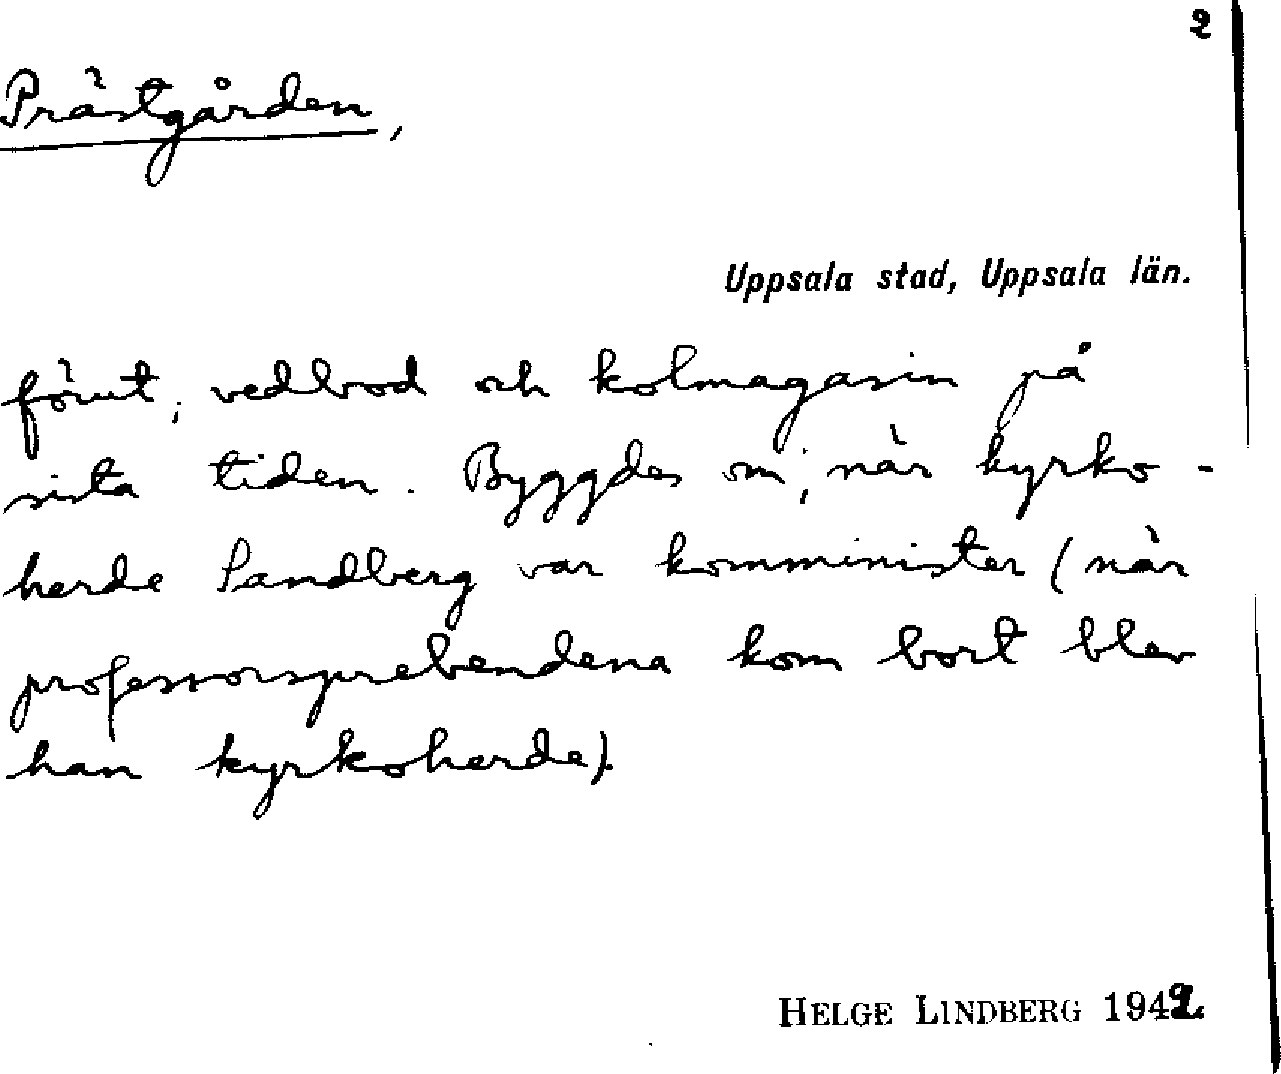 2
Prästgården,
Uppsala stad, Uppsala län.
förut, vedbod och kolmagasin på
sista tiden. Byggdes om, när kyrko-
herde Sandberg var komminister (när
professorsprebendena kom bort blev
han kyrkoherde).
HELGE LINDBERG 1942